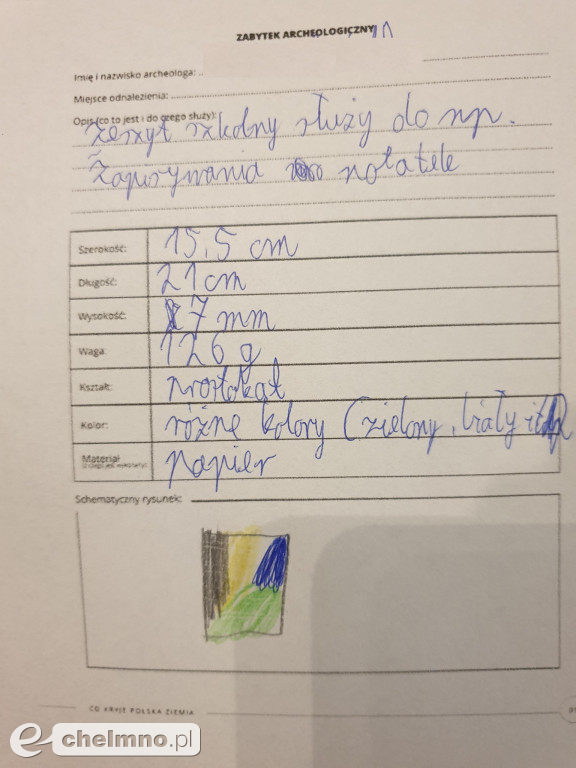 ZABYTEK ARCHEOLOGICZNY
Imię i nazwisko archeologa:
Miejsce odnalezienia:
Opis (co to jest i do czego służy):
zeszyt szkolny służy do np.
zapisywania notatek
Szerokość: 15,5 cm
Długość: 21 cm
Wysokość: 7 mm
Waga: 126 g
Kształt: prostokąt
Kolor: różne kolory (zielony, biały itp
Materiał papier
(z czego jest wykonany):
Schematyczny rysunek:
CO KRYJE POLSKA ZIEMIA
e-chelmno.pl